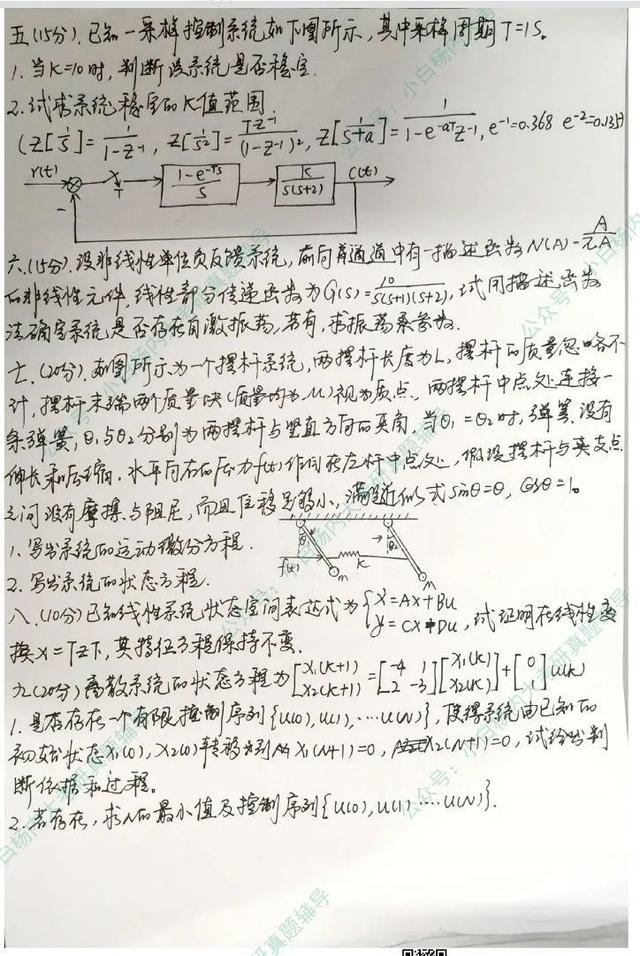 五(15分). 已知一采样控制系统如下图所示, 其中采样周期T=1S。
1. 当K=10时, 判断该系统是否稳定.
2. 试求系统稳定的K值范围.
(Z[1/S]=1/(1-Z⁻¹), Z[1/S²]=TZ⁻¹/(1-Z⁻¹)², Z[1/(S+a)]=1/(1-e^(-aT)Z⁻¹), e⁻¹=0.368 e⁻²=0.135)
r(t) T (1-e^(-Ts))/S K/(S(S+2)) C(t)
-
六.(15分). 设非线性单位负反馈系统, 前向普通道中有一描述函数N(A)=A/(πA)
的非线性元件, 线性部分传递函数为G(s)=10/(S(S+1)(S+2)), 试用描述函数
法确定系统是否存在自激振荡, 若有, 求振荡参数.
七.(20分). 如图所示为一个摆杆系统, 两摆杆长度为L, 摆杆的质量忽略不
计, 摆杆末端两个质量块(质量均为M)视为质点. 两摆杆中点处连接一
条弹簧, θ₁与θ₂分别为两摆杆与竖直方向的夹角. 当θ₁=θ₂时, 弹簧没有
伸长和压缩. 水平向右的压力f(t)作用在左杆中点处, 假设摆杆与支点
之间没有摩擦与阻尼, 而且位移足够小, 满足近似式sinθ=θ, cosθ=1。
1. 写出系统的运动微分方程.
f(t) K m m
2. 写出系统的状态方程.
八.(10分)已知线性系统状态空间表达式为{ẋ=Ax+Bu y=Cx+Du, 试证明在线性变
换x=TZ下, 其特征方程保持不变.
九(20分)离散系统的状态方程为[x₁(k+1) x₂(k+1)]=[-4 1 2 -3][x₁(k) x₂(k)]+[0 1]u(k)
1. 是否存在一个有限控制序列{u(0), u(1), …u(N)}, 使得系统由已知的
初始状态x₁(0), x₂(0)转移到x₁(N+1)=0, x₂(N+1)=0, 试给出判
断依据和过程。
2. 若存在, 求N的最小值及控制序列{u(0), u(1) …u(N)}.